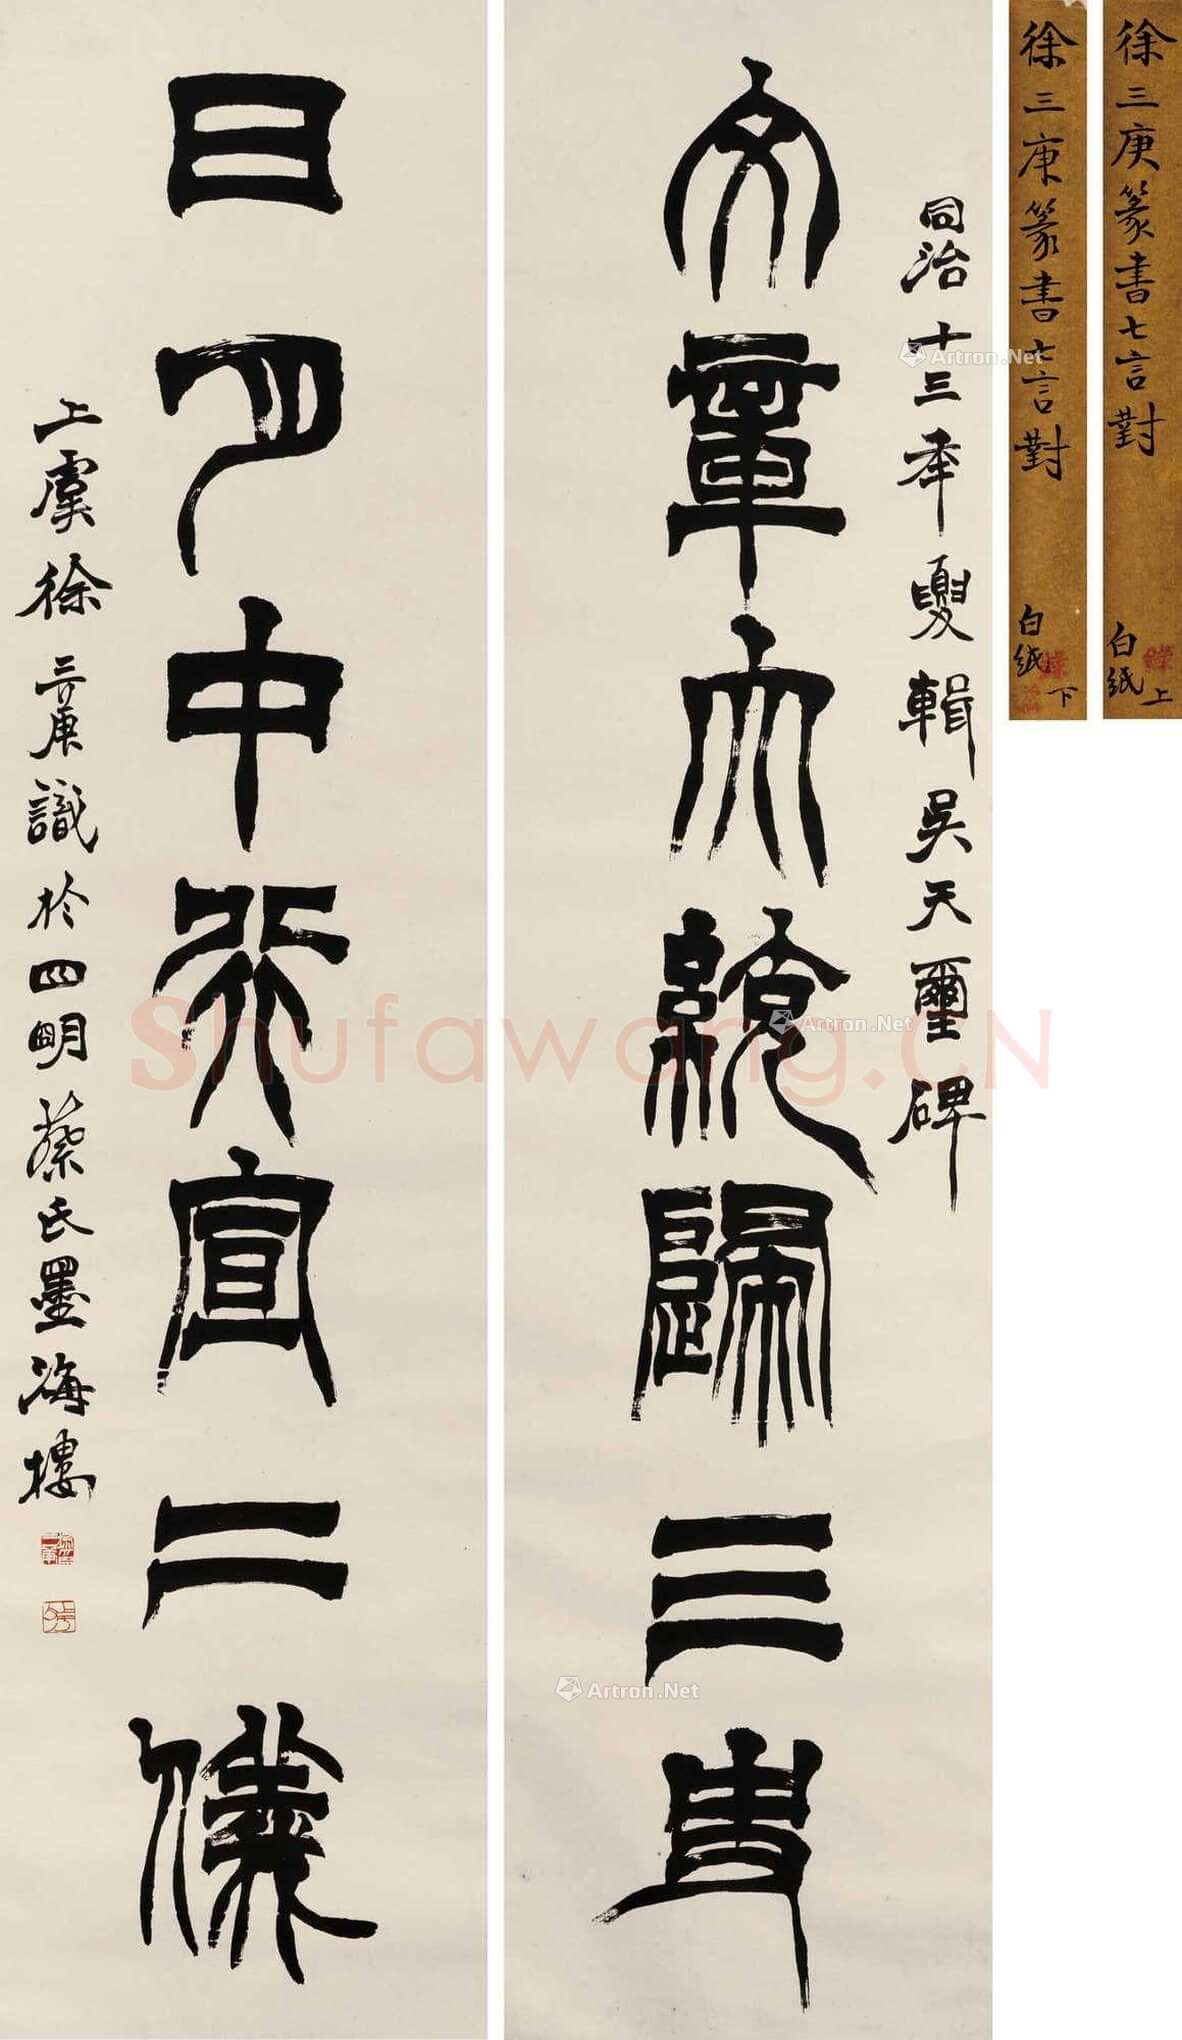 徐三庚篆書七言對
白紙
上
徐三庚篆書七言對
白紙
下
同治十三年夓輯吳天璽碑
文章大統歸三史
日月中行宣二儀
上虞徐三庚識於四明蔡氏墨海樓
Artron.Net
Artron.Net
Artron.Net
Shufawang.CN